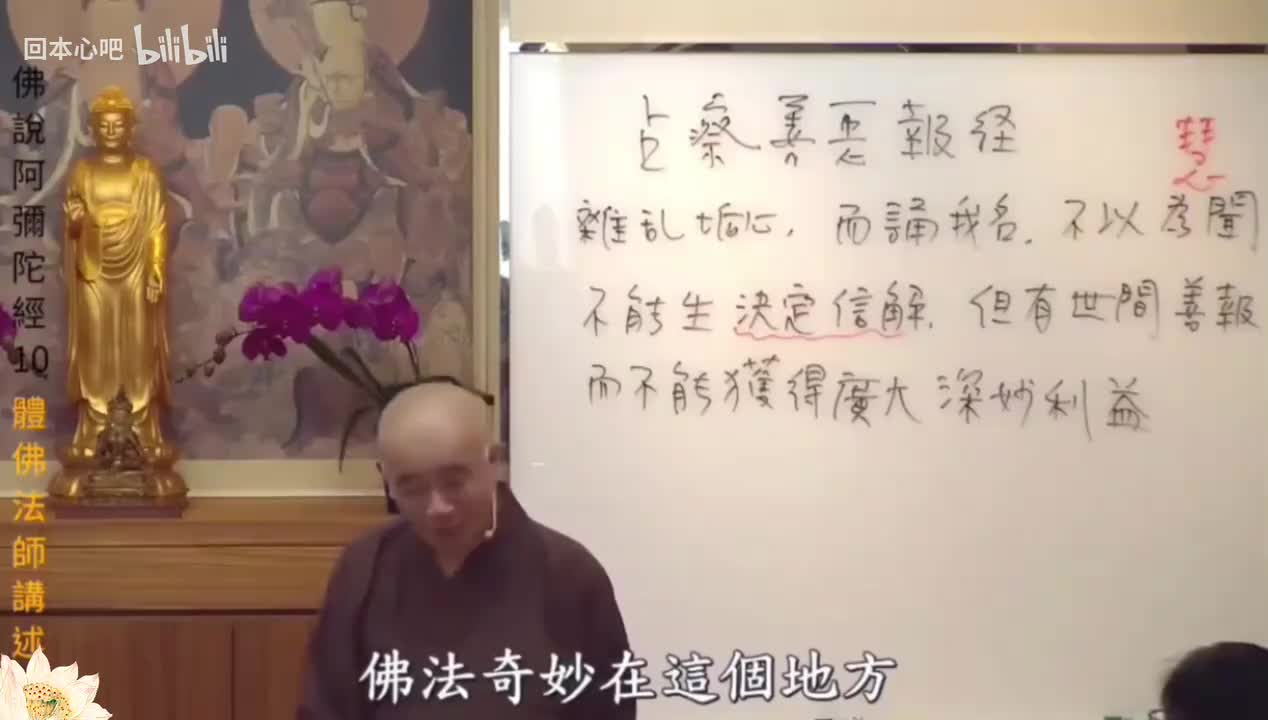 回本心吧 bilibili
佛說阿彌陀經10 體佛法師講述
占察善惡報経
慧
雜乱垢心，而誦我名，不以為聞
不能生決定信解，但有世間善報
而不能獲得廣大深妙利益
佛法奇妙在這個地方